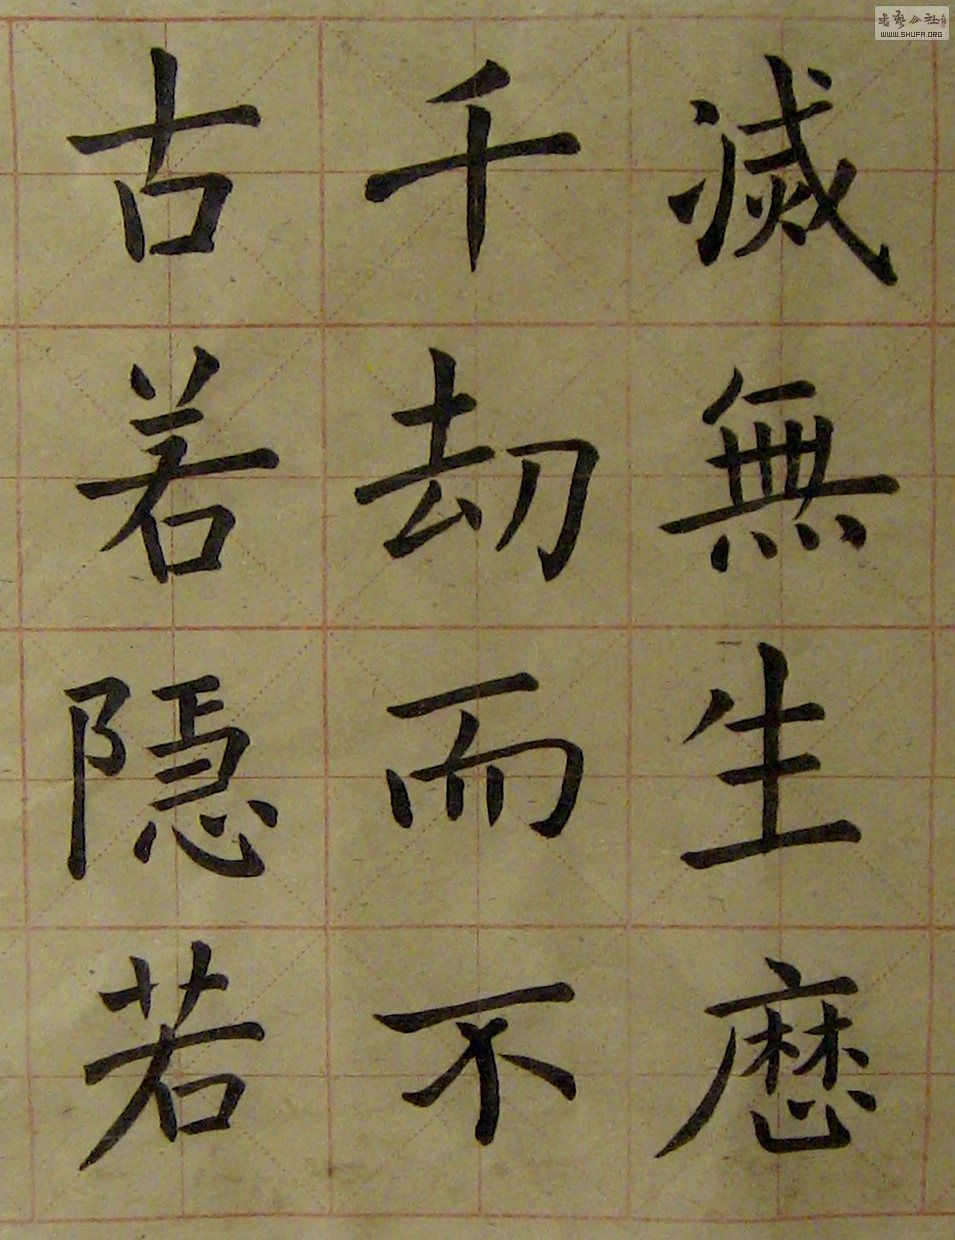 滅無生歷
千劫而不
古若隱若
书艺公社
WWW.SHUFA.ORG